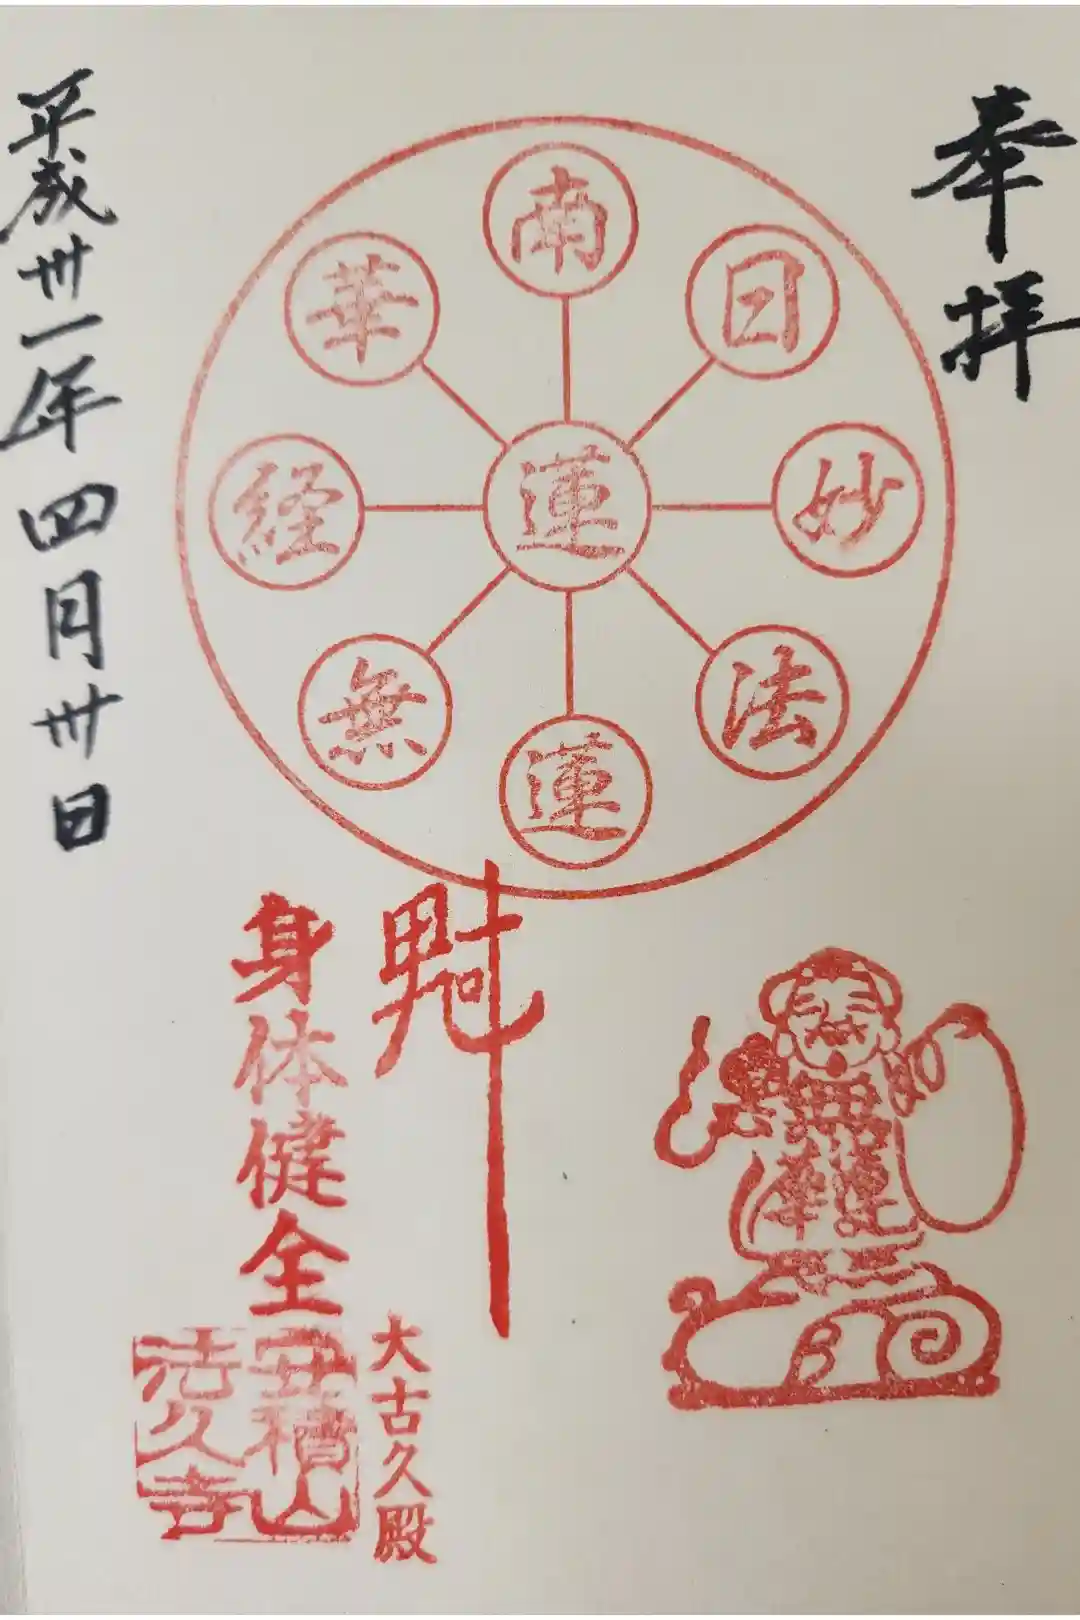 奉拝
南
日
妙
法
蓮
無
経
華
蓮
無
蓮
華
身体健全
大古久殿
山
法久寺
平成卅一年四月卅日